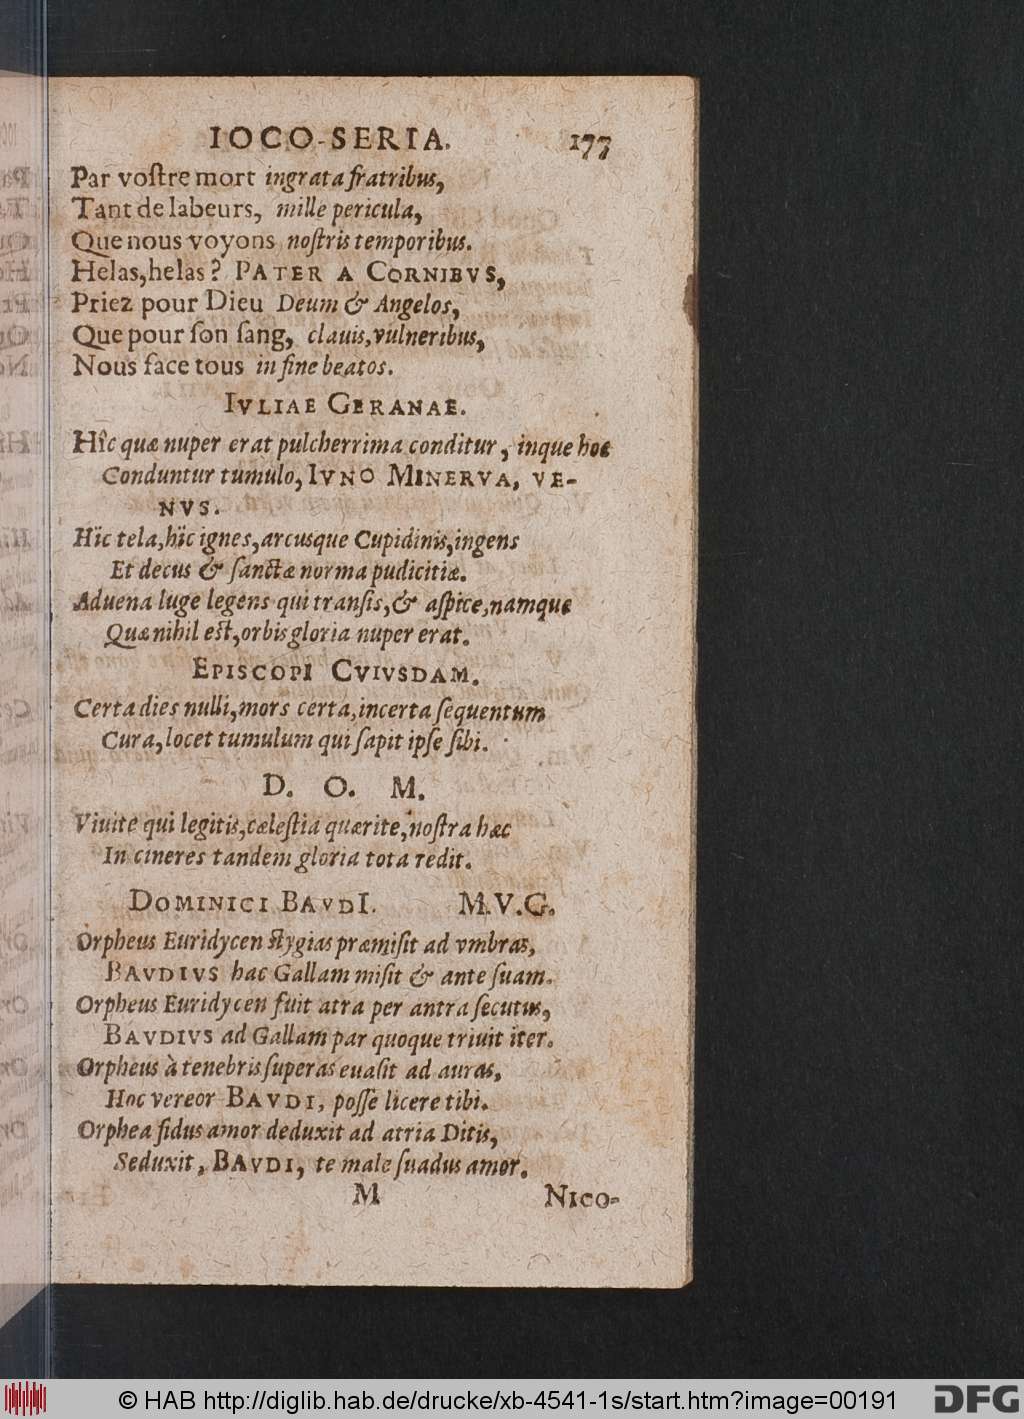 IOCO-SERIA. 177
Par voſtre mort ingrata fratribus,
Tant de labeurs, mille pericula,
Que nous voyons noſtris temporibus.
Helas, helas? PATER A CORNIBVS,
Priez pour Dieu Deum & Angelos,
Que pour ſon ſang, clauis, vulneribus,
Nous face tous in fine beatos.
IVLIAE GERANAE.
Hîc quæ nuper erat pulcherrima conditur, inque hoc
Conduntur tumulo, IVNO MINERVA, VE-
NVS.
Hîc tela, hîc ignes, arcusque Cupidinis, ingens
Et decus & ſanctæ norma pudicitiæ.
Aduena luge legens qui tranſis, & aſpice, namque
Quæ nihil eſt, orbis gloria nuper erat.
EPISCOPI CVIVSDAM.
Certa dies nulli, mors certa, incerta ſequentum
Cura, locet tumulum qui ſapit ipſe ſibi.
D. O. M.
Viuite qui legitis, cæleſtia quærite, noſtra hæc
In cineres tandem gloria tota redit.
DOMINICI BAVDI. M.V.G.
Orpheus Euridycen ſtygias præmiſit ad vmbras,
BAVDIVS hac Gallam miſit & ante ſuam.
Orpheus Euridycen fuit atra per antra ſecutus,
BAVDIVS ad Gallam par quoque triuit iter.
Orpheus à tenebris ſuperas euaſit ad auras,
Hoc vereor BAVDI, poſſe licere tibi.
Orphea fidus amor deduxit ad atria Ditis,
Seduxit, BAVDI, te male ſuadus amor.
M NICO-
© HAB http://diglib.hab.de/drucke/xb-4541-1s/start.htm?image=00191
DFG